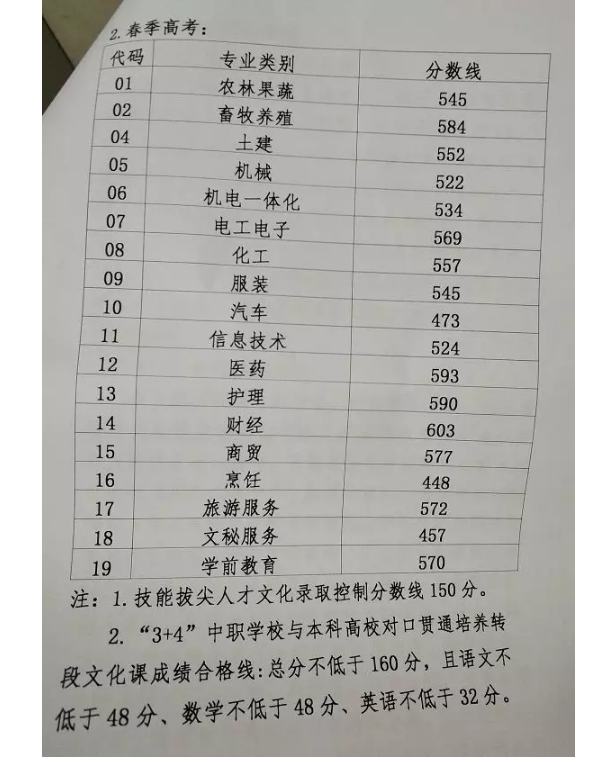 2.春季高考：
代码 专业类别 分数线
01 农林果蔬 545
02 畜牧养殖 584
04 土建 552
05 机械 522
06 机电一体化 534
07 电工电子 569
08 化工 557
09 服装 545
10 汽车 473
11 信息技术 524
12 医药 593
13 护理 590
14 财经 603
15 商贸 577
16 烹饪 448
17 旅游服务 572
18 文秘服务 457
19 学前教育 570
注：1.技能拔尖人才文化录取控制分数线150分。
2.“3+4”中职学校与本科高校对口贯通培养转
段文化课成绩合格线:总分不低于160分，且语文不
低于48分、数学不低于48分、英语不低于32分。